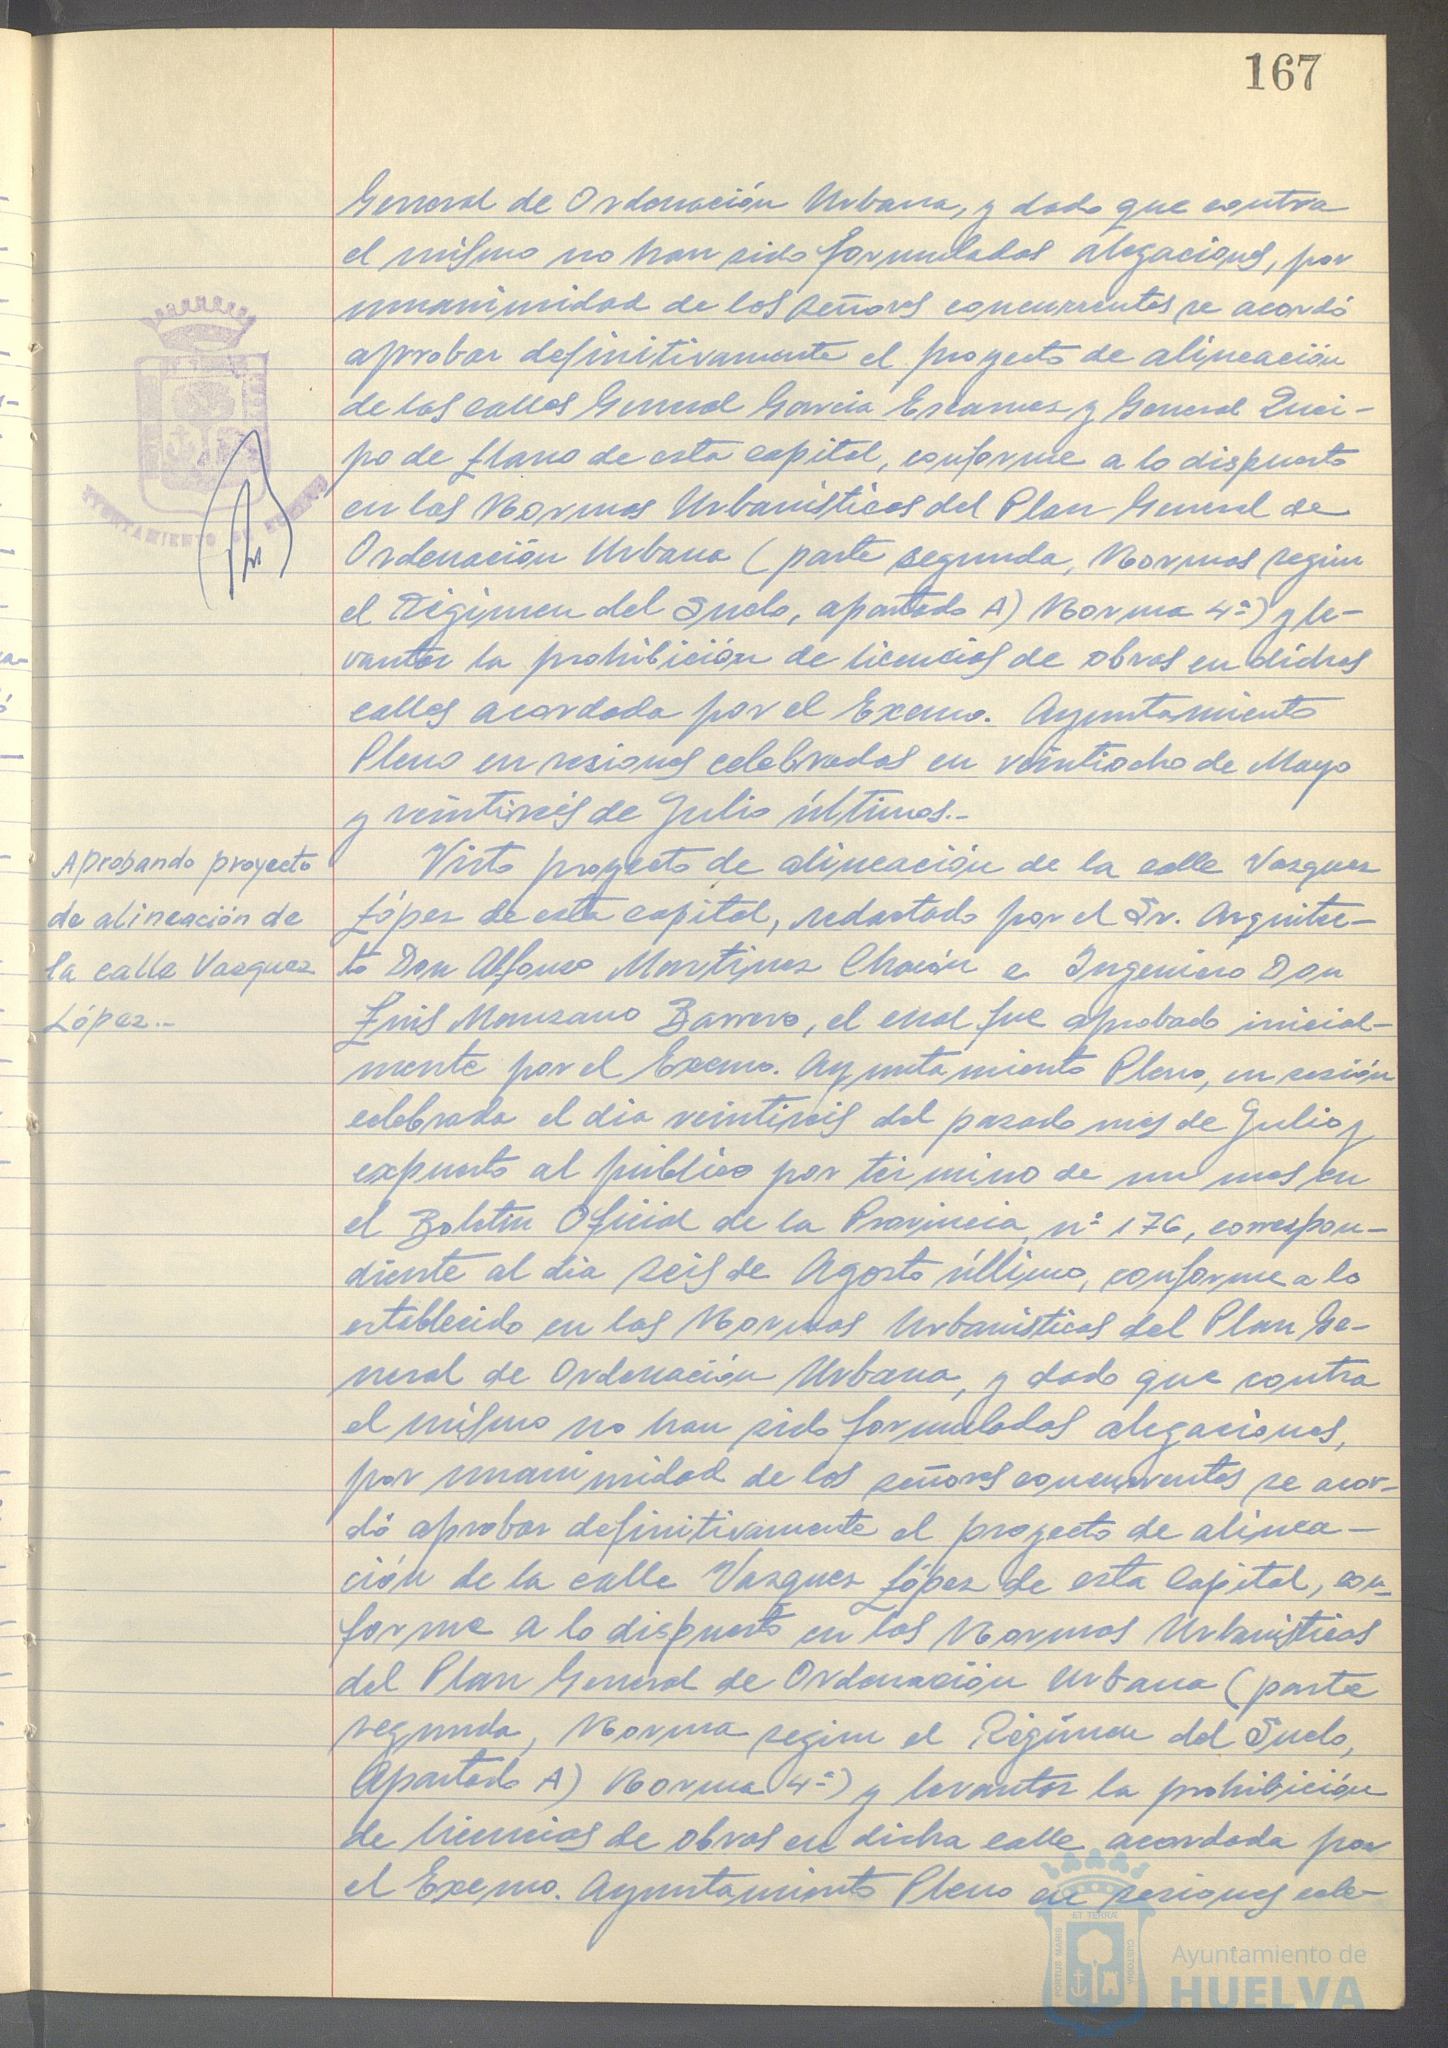 167
General de Ordenación Urbana, y dado que contra
el mismo no han sido formuladas alegaciones, por
unanimidad de los señores concurrentes se acordó
aprobar definitivamente el proyecto de alineación
de las calles General García Escamez y General Quei-
po de Llano de esta capital, conforme a lo dispuesto
en las Normas Urbanísticas del Plan General de
Ordenación Urbana (parte segunda, Normas según
el Régimen del Suelo, apartado A) Norma 4ª) y le-
vantar la prohibición de licencias de obras en dichas
calles acordada por el Excmo. Ayuntamiento
Pleno en sesiones celebradas en veintiocho de Mayo
y veintiseis de Julio últimos.-
Aprobando proyecto
de alineación de
la calle Vazquez
López.-
Visto proyecto de alineación de la calle Vazquez
López de esta capital, redactado por el Sr. Arquitec-
to Don Alfonso Martinez Chacón e Ingeniero Don
Luis Manzano Barrero, el cual fue aprobado inicial-
mente por el Excmo. Ayuntamiento Pleno, en sesión
celebrada el dia veintiseis del pasado mes de Julio y
expuesto al público por término de un mes en
el Boletin Oficial de la Provincia, nº 176, correspon-
diente al dia seis de Agosto último, conforme a lo
establecido en las Normas Urbanísticas del Plan Ge-
neral de Ordenación Urbana, y dado que contra
el mismo no han sido formuladas alegaciones,
por unanimidad de los señores concurrentes se acor-
dó aprobar definitivamente el proyecto de alinea-
ción de la calle Vazquez López de esta Capital, con-
forme a lo dispuesto en las Normas Urbanísticas
del Plan General de Ordenación Urbana (parte
segunda, Norma según el Régimen del Suelo,
Apartado A) Norma 4ª) y levantar la prohibición
de licencias de obras en dicha calle acordada por
el Excmo. Ayuntamiento Pleno en sesiones cele-
AYUNTAMIENTO DE HUELVA
PORTUS MARIS
ET TERRÆ
CUSTODIA
Ayuntamiento de
HUELVA